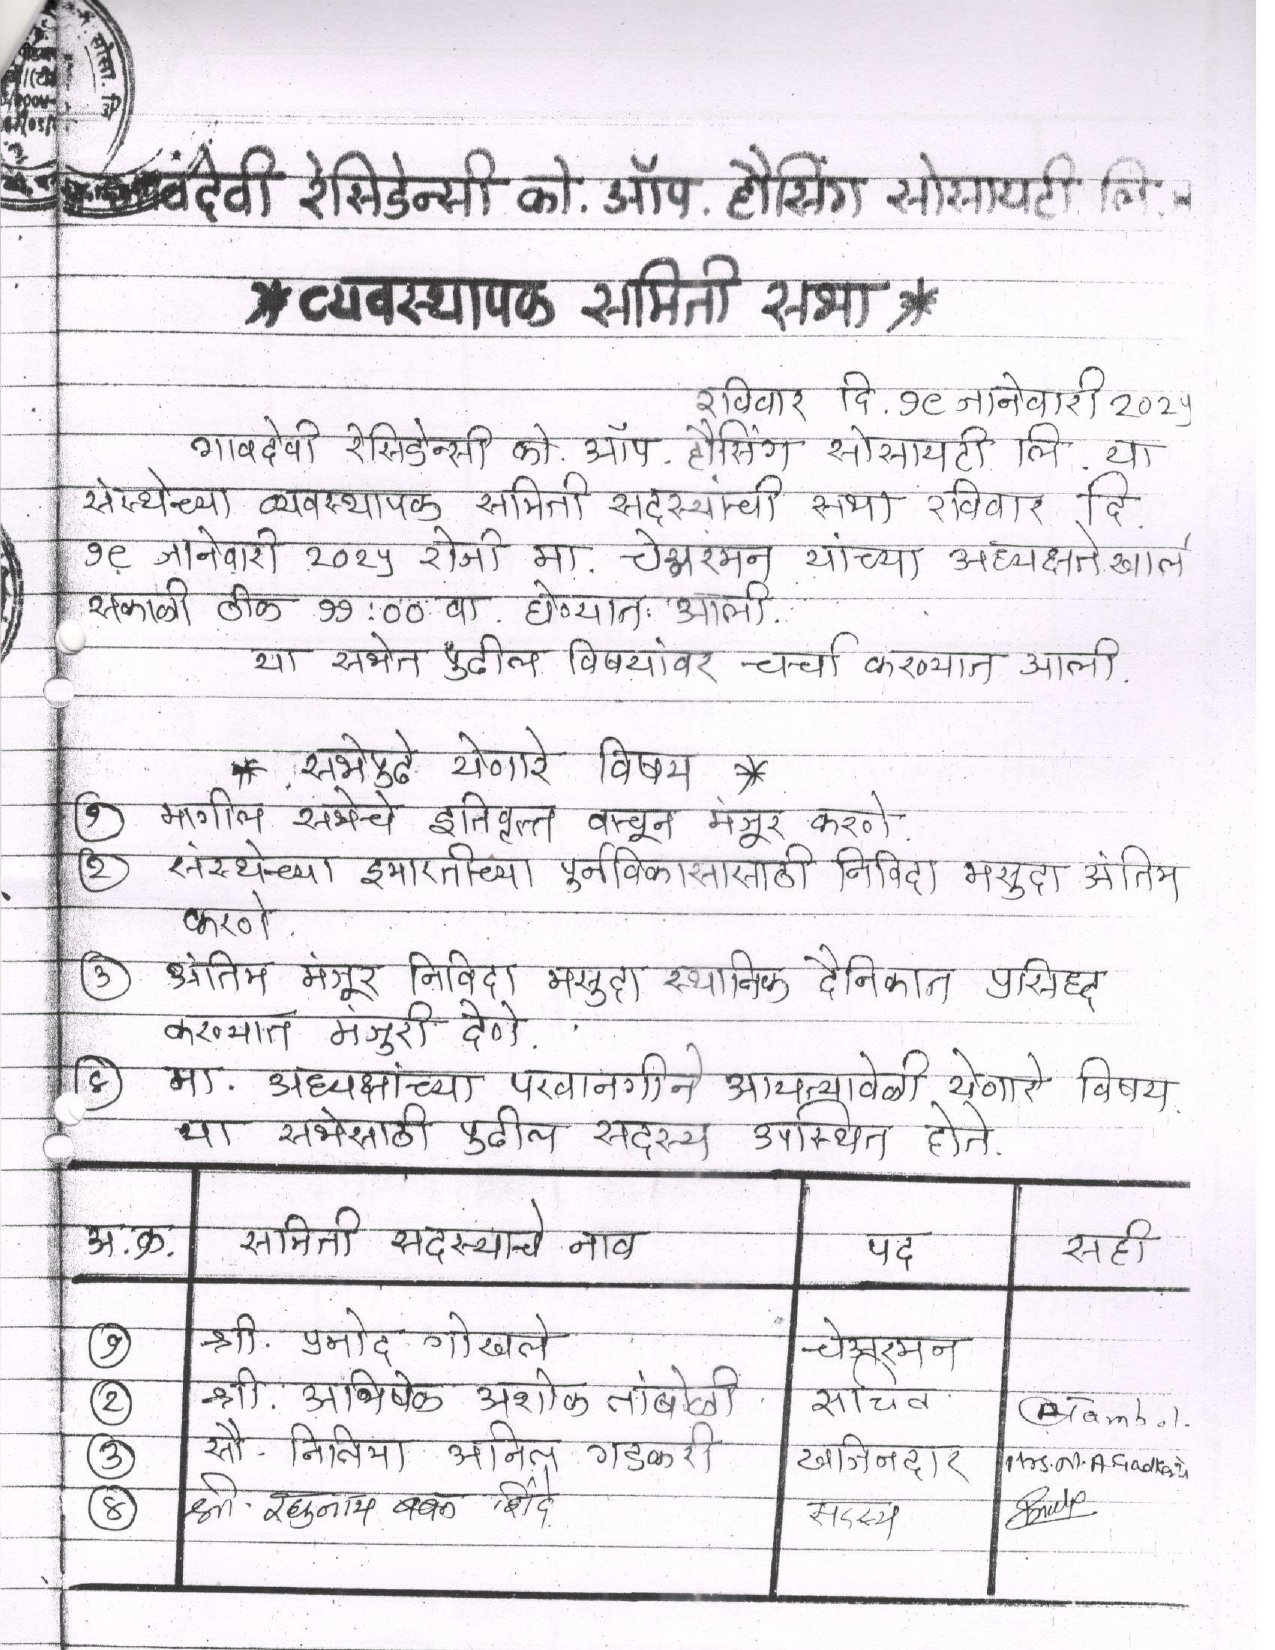 वदेवी रेसिडेन्सी को. ऑप. हौसिंग सोसायटी लि.
* व्यवस्थापक समिती सभा *
रविवार दि. १९ जानेवारी २०२५
गावदेवी रेसिडेन्सी को. ऑप. हौसिंग सोसायटी लि. या
संस्थेच्या व्यवस्थापक समिती सदस्यांची सभा रविवार दि.
१९ जानेवारी २०२५ रोजी मा. चेअरमन यांच्या अध्यक्षतेखाल
सकाळी ठीक ११:०० वा. घेण्यात आली.
या सभेत पुढील विषयांवर चर्चा करण्यात आली.
* सभेपुढे येणारे विषय *
१ मागील सभेचे इतिवृत्त वाचून मंजूर करणे.
२ संस्थेच्या इमारतीच्या पुर्नविकासासाठी निविदा मसुदा अंतिम
करणे.
३ अंतिम मंजूर निविदा मसुदा स्थानिक दैनिकात प्रसिद्ध
करण्यात मंजुरी देणे.
४ मा. अध्यक्षांच्या परवानगीने आयत्यावेळी येणारे विषय.
या सभेसाठी पुढील सदस्य उपस्थित होते.
अ.क्र. समिती सदस्याचे नाव पद सही
१ श्री. प्रमोद गोखले चेअरमन
२ श्री. अभिषेक अशोक तांबोळी सचिव
३ सौ. निलिमा अनिल गडकरी खजिनदार Mrs. N. A. Gadkari
४ श्री. रघुनाथ बबन शिंदे सदस्य